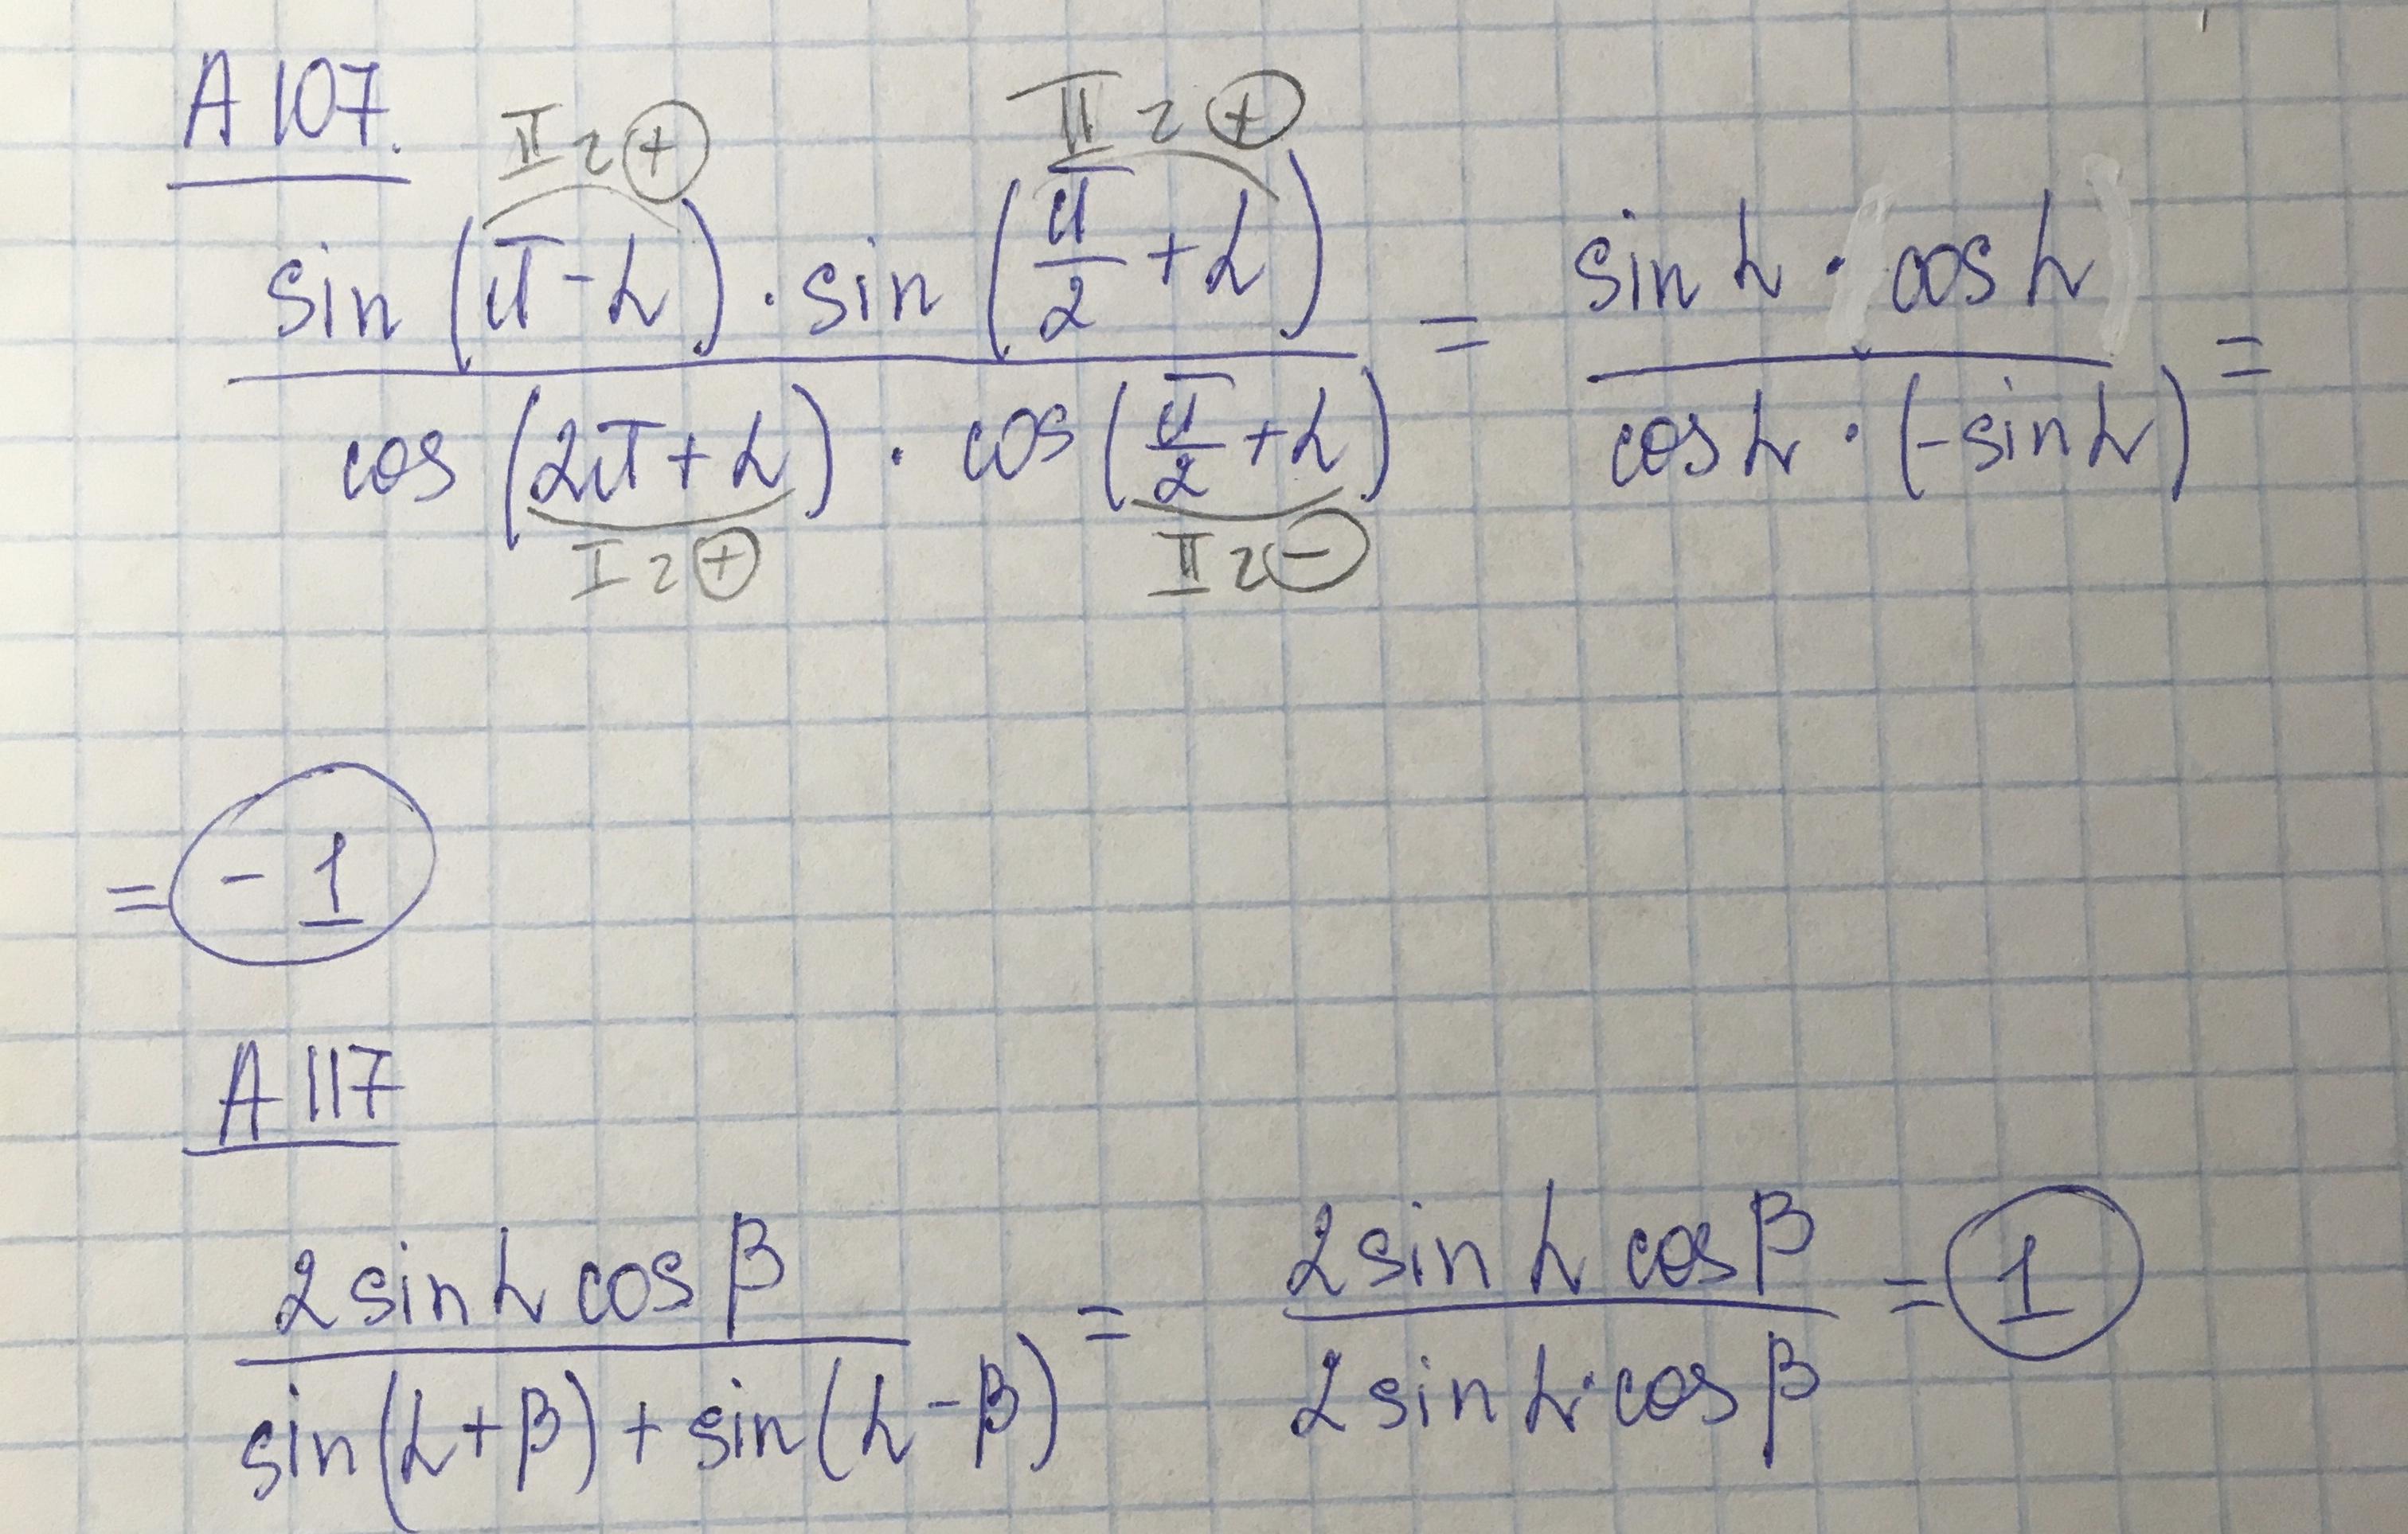 A 107.
II г + II г +
sin (π - α) · sin (π/2 + α) / cos (2π + α) · cos (π/2 + α) = sin α · cos α / cos α · (-sin α) =
I г + II г -
= - 1
A 117
2 sin α cos β / sin(α + β) + sin(α - β) = 2 sin α cos β / 2 sin α · cos β = 1